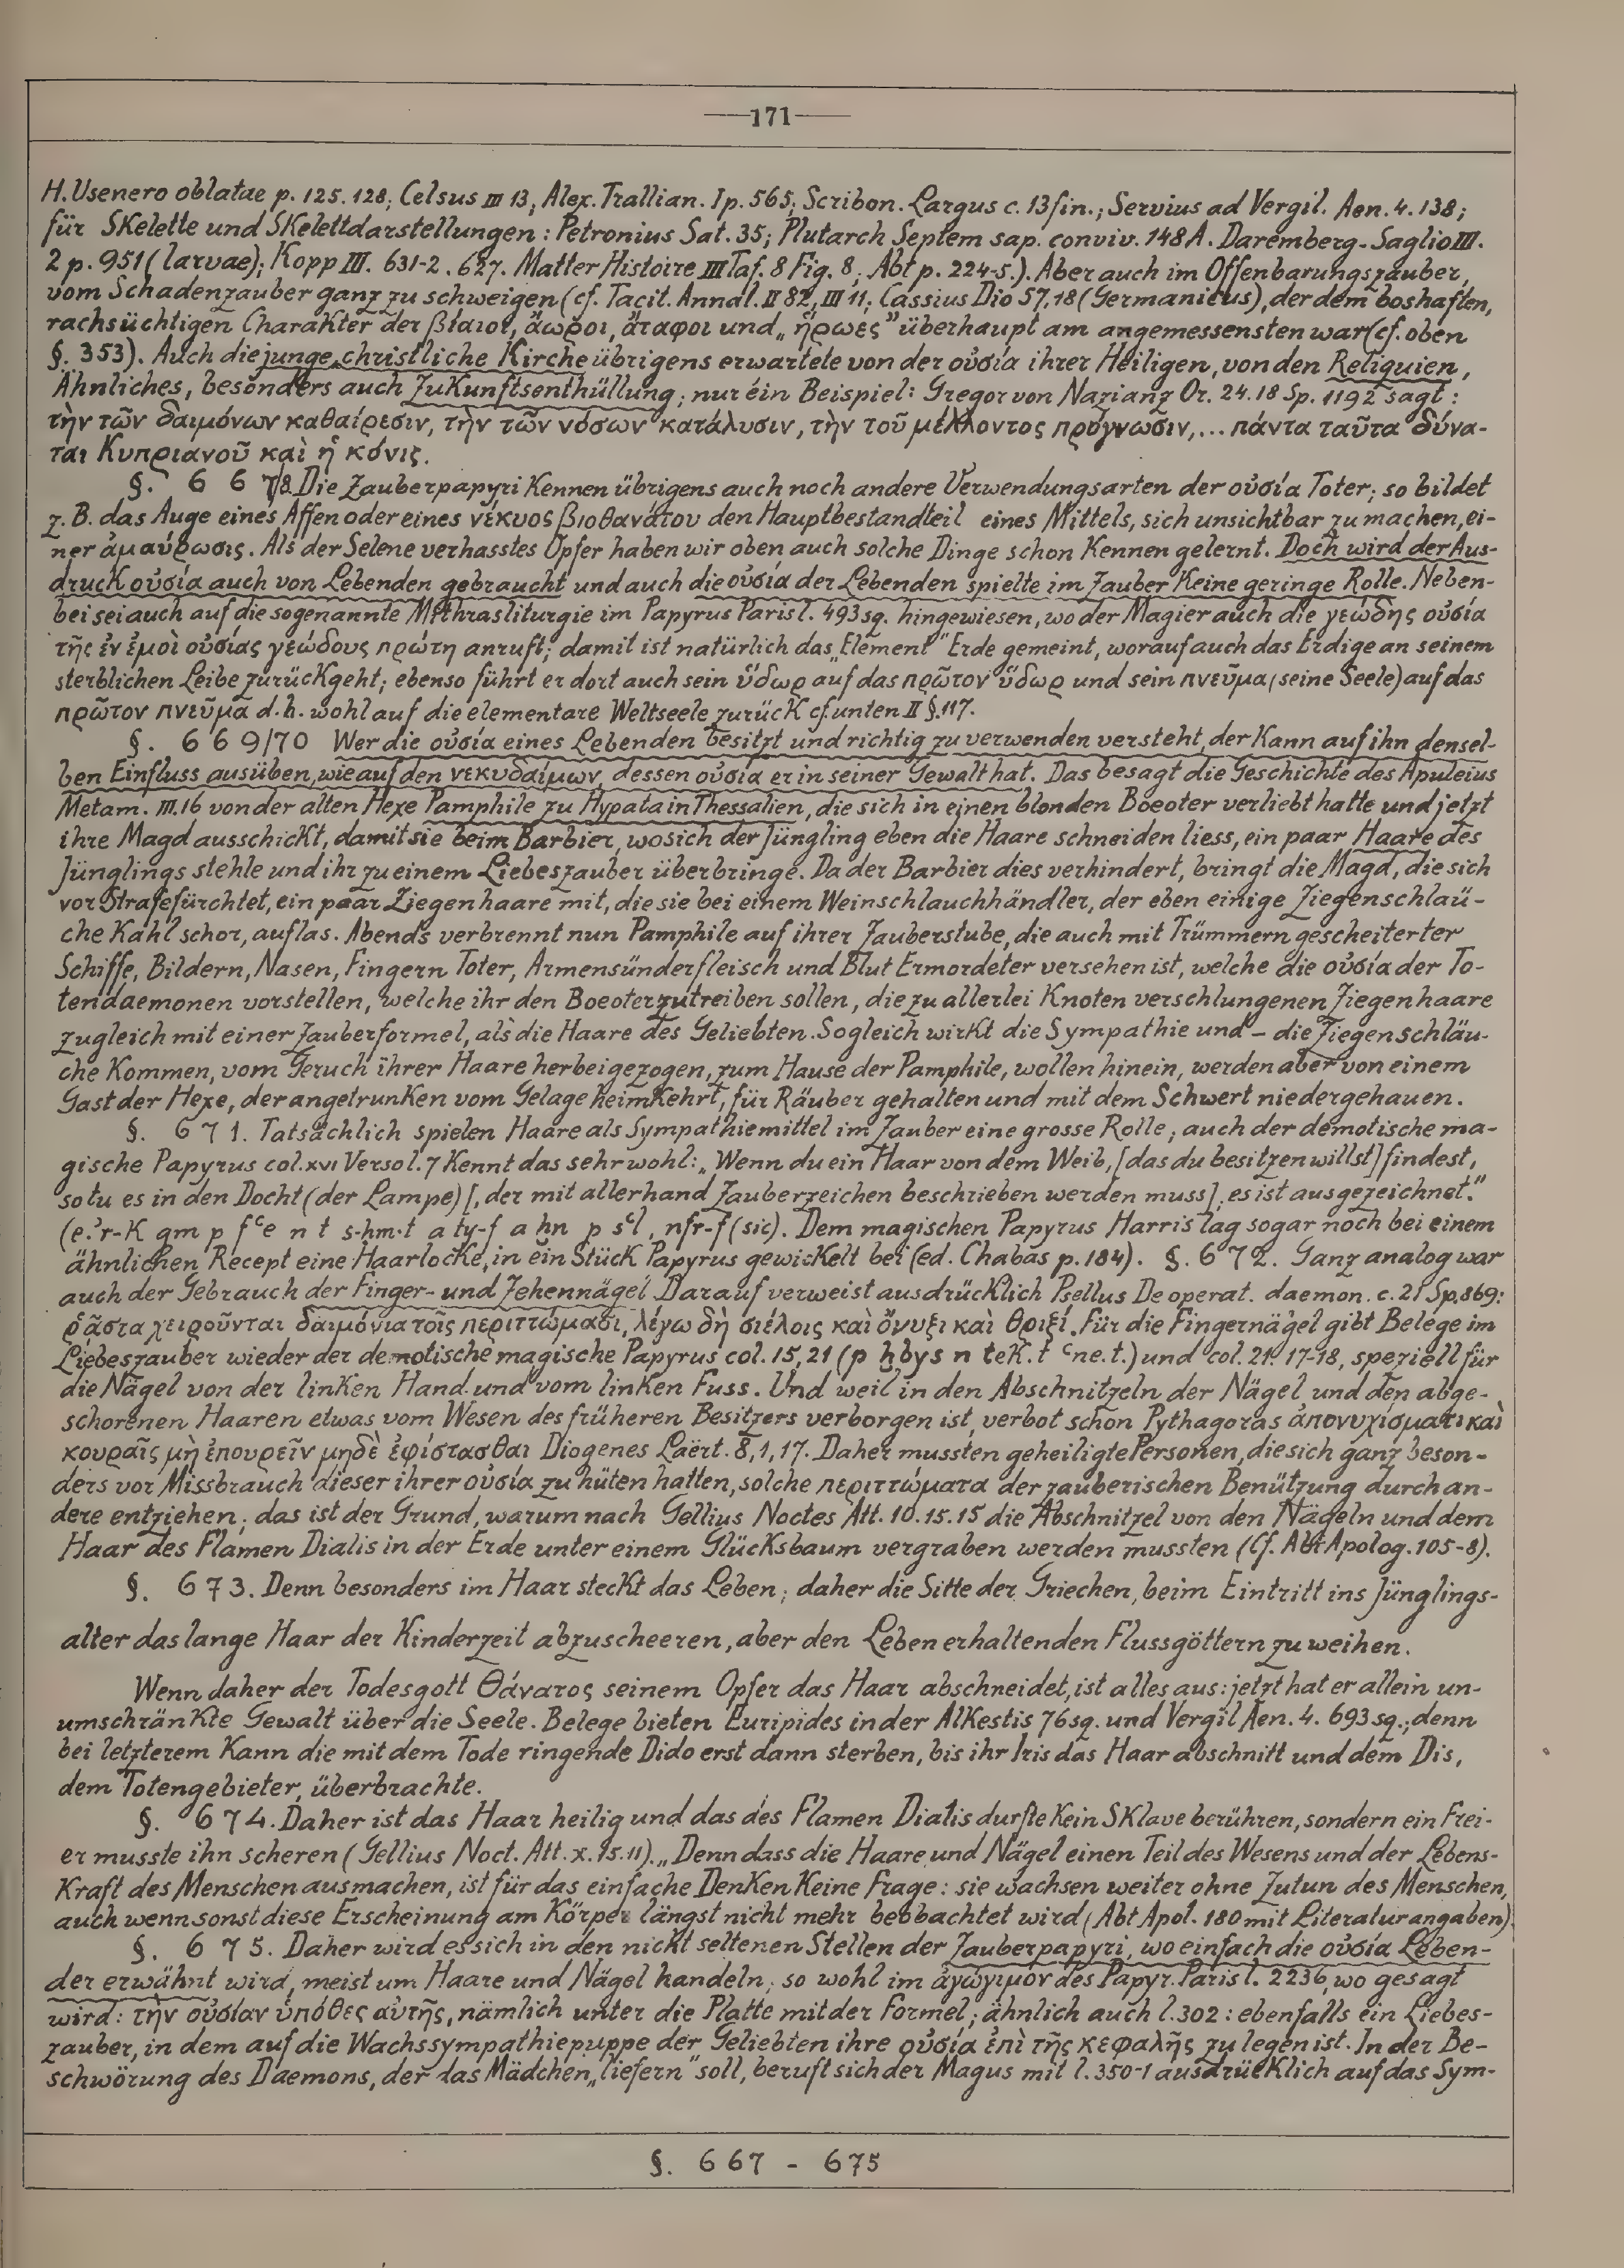 —171—
H. Usenero oblatae p. 125. 128; Celsus III 13; Alex. Trallian. I p. 565; Scribon. Largus c. 13 fin.; Servius ad Vergil. Aen. 4. 138;
für Skelette und Skelettdarstellungen: Petronius Sat. 35; Plutarch Septem sap. conviv. 148 A. Daremberg-Saglio III.
2 p. 951 (larvae); Kopp III. 631-2. 627. Matter Histoire III Taf. 8 Fig. 8; Abt p. 224-5.). Aber auch im Offenbarungszauber,
vom Schadenzauber ganz zu schweigen (cf. Tacit. Annal. II 82, III 11; Cassius Dio 57,18 (Germanicus), der dem boshaften,
rachsüchtigen Charakter der βίαιοι, ἄωροι, ἄταφοι und „ἥρωες" überhaupt am angemessensten war (cf. oben
§. 353). Auch die junge christliche Kirche übrigens erwartete von der οὐσία ihrer Heiligen, von den Reliquien,
Ähnliches, besonders auch Zukunftsenthüllung; nur ein Beispiel: Gregor von Nazianz Or. 24. 18 Sp. 1192 sagt:
τὴν τῶν δαιμόνων καθαίρεσιν, τὴν τῶν νόσων κατάλυσιν, τὴν τοῦ μέλλοντος πρόγνωσιν,... πάντα ταῦτα δύνα-
ται Κυπριανοῦ καὶ ἡ κόνις.
§. 6 6 7/8 Die Zauberpapyri kennen übrigens auch noch andere Verwendungsarten der οὐσία Toter; so bildet
z. B. das Auge eines Affen oder eines νέκυος βιοθανάτου den Hauptbestandteil eines Mittels, sich unsichtbar zu machen, ei-
ner ἀμαύρωσις. Als der Selene verhasstes Opfer haben wir oben auch solche Dinge schon kennen gelernt. Doch wird der Aus-
druck οὐσία auch von Lebenden gebraucht und auch die οὐσία der Lebenden spielte im Zauber keine geringe Rolle. Neben-
bei sei auch auf die sogenannte Mithrasliturgie im Papyrus Paris l. 493 sq. hingewiesen, wo der Magier auch die γεώδης οὐσία
τῆς ἐν ἐμοὶ οὐσίας γεώδους πρώτη anruft; damit ist natürlich das „Element" Erde gemeint, worauf auch das Erdige an seinem
sterblichen Leibe zurückgeht; ebenso führt er dort auch sein ὕδωρ auf das πρῶτον ὕδωρ und sein πνεῦμα (seine Seele) auf das
πρῶτον πνεῦμα d. h. wohl auf die elementare Weltseele zurück cf. unten II §. 117.
§. 6 6 9/70 Wer die οὐσία eines Lebenden besitzt und richtig zu verwenden versteht, der kann auf ihn densel-
ben Einfluss ausüben, wie auf den νεκυδαίμων, dessen οὐσία er in seiner Gewalt hat. Das besagt die Geschichte des Apuleius
Metam. III. 16 von der alten Hexe Pamphile zu Hypata in Thessalien, die sich in einen blonden Boeoter verliebt hatte und jetzt
ihre Magd ausschickt, damit sie beim Barbier, wo sich der Jüngling eben die Haare schneiden liess, ein paar Haare des
Jünglings stehle und ihr zu einem Liebeszauber überbringe. Da der Barbier dies verhindert, bringt die Magd, die sich
vor Strafe fürchtet, ein paar Ziegenhaare mit, die sie bei einem Weinschlauchhändler, der eben einige Ziegenschläu-
che kahl schor, auflas. Abends verbrennt nun Pamphile auf ihrer Zauberstube, die auch mit Trümmern gescheiterter
Schiffe, Bildern, Nasen, Fingern Toter, Armensünderfleisch und Blut Ermordeter versehen ist, welche die οὐσία der To-
tendaemonen vorstellen, welche ihr den Boeoter zutreiben sollen, die zu allerlei Knoten verschlungenen Ziegenhaare
zugleich mit einer Zauberformel, als die Haare des Geliebten. Sogleich wirkt die Sympathie und – die Ziegenschläu-
che kommen, vom Geruch ihrer Haare herbeigezogen, zum Hause der Pamphile, wollen hinein, werden aber von einem
Gast der Hexe, der angetrunken vom Gelage heimkehrt, für Räuber gehalten und mit dem Schwert niedergehauen.
§. 6 7 1. Tatsächlich spielen Haare als Sympathiemittel im Zauber eine grosse Rolle; auch der demotische ma-
gische Papyrus col. XVI Verso l. 7 kennt das sehr wohl: „Wenn du ein Haar von dem Weib, [das du besitzen willst] findest,
so tu es in den Docht (der Lampe) [, der mit allerhand Zauberzeichen beschrieben werden muss]; es ist ausgezeichnet."
(e.ʾr-k gm p fᶜe n t s-ḥm.t a ty-f a ẖn p sᶜl, nfr-f (sic). Dem magischen Papyrus Harris lag sogar noch bei einem
ähnlichen Recept eine Haarlocke, in ein Stück Papyrus gewickelt bei (ed. Chabas p. 184). §. 6 7 2. Ganz analog war
auch der Gebrauch der Finger- und Zehennägel. Darauf verweist ausdrücklich Psellus De operat. daemon. c. 21 Sp. 869:
ῥᾷστα χειροῦνται δαιμόνια τοῖς περιττώμασι, λέγω δὴ σιέλοις καὶ ὄνυξι καὶ θριξί. Für die Fingernägel gibt Belege im
Liebeszauber wieder der demotische magische Papyrus col. 15, 21 (p ẖbys n tek.t ᶜne.t.) und col. 21. 17-18, speziell für
die Nägel von der linken Hand und vom linken Fuss. Und weil in den Abschnitzeln der Nägel und den abge-
schorenen Haaren etwas vom Wesen des früheren Besitzers verborgen ist, verbot schon Pythagoras ἀπονυχίσμασι καὶ
κουραῖς μὴ ἐπουρεῖν μηδὲ ἐφίστασθαι Diogenes Laërt. 8, 1, 17. Daher mussten geheiligte Personen, die sich ganz beson-
ders vor Missbrauch dieser ihrer οὐσία zu hüten hatten, solche περιττώματα der zauberischen Benützung durch an-
dere entziehen; das ist der Grund, warum nach Gellius Noctes Att. 10. 15. 15 die Abschnitzel von den Nägeln und dem
Haar des Flamen Dialis in der Erde unter einem Glücksbaum vergraben werden mussten (Cf. Abt Apolog. 105-8).
§. 6 7 3. Denn besonders im Haar steckt das Leben; daher die Sitte der Griechen, beim Eintritt ins Jünglings-
alter das lange Haar der Kinderzeit abzuscheeren, aber den Leben erhaltenden Flussgöttern zu weihen.
Wenn daher der Todesgott Θάνατος seinem Opfer das Haar abschneidet, ist alles aus: jetzt hat er allein un-
umschränkte Gewalt über die Seele. Belege bieten Euripides in der Alkestis 76 sq. und Vergil Aen. 4. 693 sq.; denn
bei letzterem kann die mit dem Tode ringende Dido erst dann sterben, bis ihr Iris das Haar abschnitt und dem Dis,
dem Totengebieter, überbrachte.
§. 6 7 4. Daher ist das Haar heilig und das des Flamen Dialis durfte kein Sklave berühren, sondern ein Frei-
er musste ihn scheren (Gellius Noct. Att. X. 15. 11). „Denn dass die Haare und Nägel einen Teil des Wesens und der Lebens-
kraft des Menschen ausmachen, ist für das einfache Denken keine Frage: sie wachsen weiter ohne Zutun des Menschen,
auch wenn sonst diese Erscheinung am Körper längst nicht mehr beobachtet wird (Abt Apol. 180 mit Literaturangaben).
§. 6 7 5. Daher wird es sich in den nicht seltenen Stellen der Zauberpapyri, wo einfach die οὐσία Leben-
der erwähnt wird, meist um Haare und Nägel handeln; so wohl im ἀγώγιμον des Papyr. Paris l. 2236, wo gesagt
wird: τὴν οὐσίαν ὑπόθες αὐτῆς, nämlich unter die Platte mit der Formel; ähnlich auch l. 302: ebenfalls ein Liebes-
zauber, in dem auf die Wachssympathiepuppe der Geliebten ihre οὐσία ἐπὶ τῆς κεφαλῆς zu legen ist. In der Be-
schwörung des Daemons, der das Mädchen „liefern" soll, beruft sich der Magus mit l. 350-1 ausdrücklich auf das Sym-
§. 667 - 675